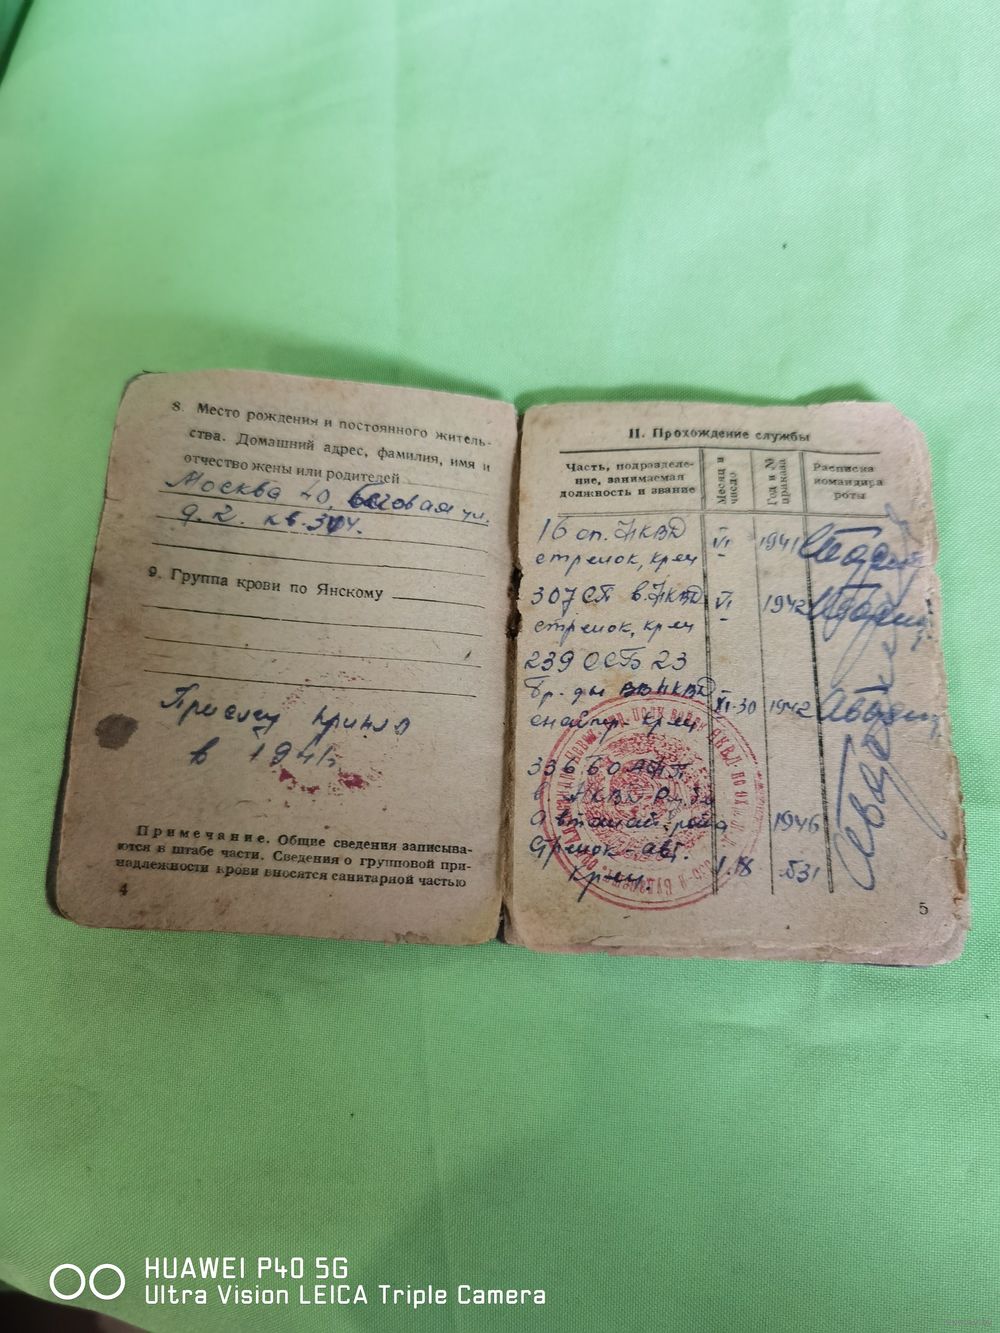 8. Место рождения и постоянного житель-
ства. Домашний адрес, фамилия, имя и
отчество жены или родителей
Москва 40, Беговая ул.
д. 2. кв. 304.
9. Группа крови по Янскому
Присягу принял
в 1941
Примечание. Общие сведения записыва-
ются в штабе части. Сведения о групповой при-
надлежности крови вносятся санитарной частью
4
II. Прохождение службы
Часть, подразделе-
ние, занимаемая
должность и звание
Месяц и
число
Год и №
приказа
Расписка
командира
роты
16 сп. НКВД
стрелок, кр-ец VI 1941
307 СП в. НКВД VI 1942
стрелок, кр-ец
239 ОСБ 23
бр-ды ВВ НКВД XI-30 1942
снайпер кр-ец
336
НКВД
рота 1946
Стрелок-авт. 1.18 531
кр-ец.
5
HUAWEI P40 5G
Ultra Vision LEICA Triple Camera